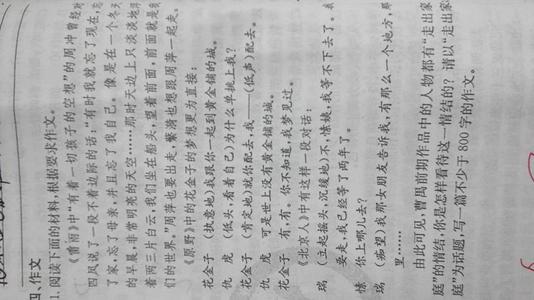 四、作文
1. 阅读下面的材料,根据要求作文。
《雷雨》中“有着一切孩子的空想”的周冲曾经对
四凤说了一段不着边际的话:“有时我就忘了现在,忘
了家,忘了母亲,并且忘了我自己。像是在一个冬天
的早晨,非常明亮的天空……那时天边上只淡淡地浮
着两三片白云,我们坐在船头,望着前面,前面就是我
们的世界。”周萍也要出走,繁漪也想跟周萍一起走。
《原野》中的花金子的梦想更为直接:
花金子 (执意地)我跟你一起到黄金铺的城。
仇 虎 (低头,看着自己)为什么单挑上我?
花金子 (肯定地)就你配去,我——(低声)配去。
仇 虎 可是世上没有黄金铺的城。
花金子 有,有。你不知道,我梦见过。
《北京人》中有这样一段对话:
瑞 (立起摇头,沉缓地)不,愫姨,我等不下去了。我
要走,我已经等了两年了。
愫 你上哪儿去?
瑞 (痴望)我那女朋友告诉我,有那么一个地方,那
里……
由此可见,曹禺前期作品中的人物都有“走出家
庭”的情结,你是怎样看待这一情结的?请以“走出家
庭”为话题,写一篇不少于 800 字的作文。